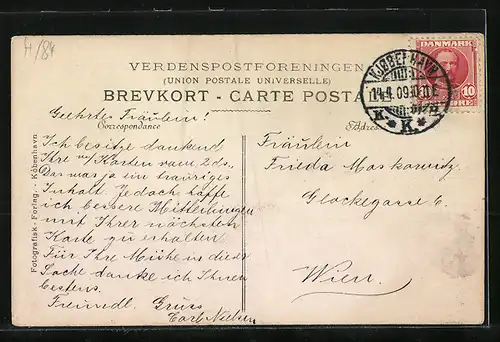 H/84
VERDENSPOSTFORENINGEN
(UNION POSTALE UNIVERSELLE)
BREVKORT - CARTE POSTA
DANMARK
10
ØRE
KJØBENHAVN
14.4.09
K.
Correspondance
Adres
Fotografisk - Forlag. - Köbenhavn
Geehrtes Fräulein!
Ich besitze dankend
Ihre Karten vom 2 ds.
Das war ja ein trauriges
Inhalt. Jedoch hoffe
ich bessere Mitteilungen
mit Ihrer nächsten
Karte zu erhalten
Für Ihre Mühe in dieser
Sache danke ich Ihnen
bestens.
Freundl. Gruss
Carl Nielsen
Fräulein
Frieda Moskowitz
Glockegasse 6.
Wien.